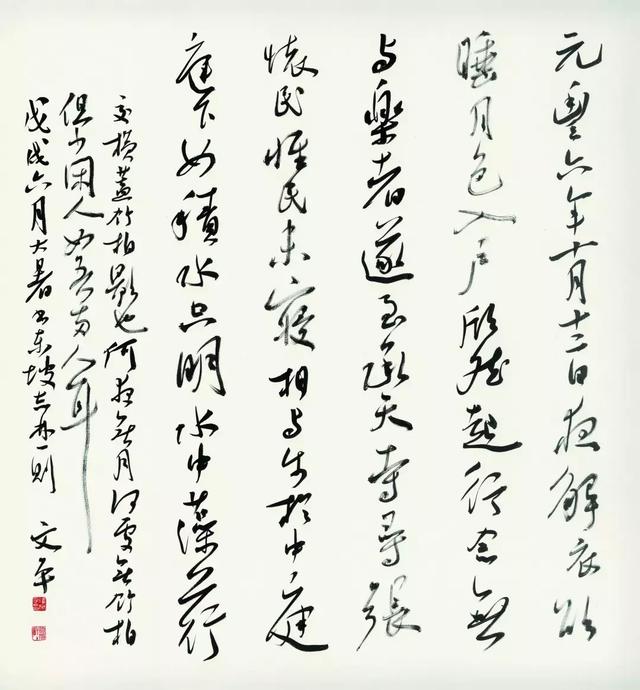 元豐六年十月十二日夜解衣欲
睡月色入户欣然起行念無
与樂者遂至承天寺尋張
懷民懷民未寢相与步於中庭
庭下如積水空明水中藻荇
交横蓋竹柏影也何夜無月何處無竹柏
但少闲人如吾两人耳
戊戌六月大暑书東坡志林一則 文平